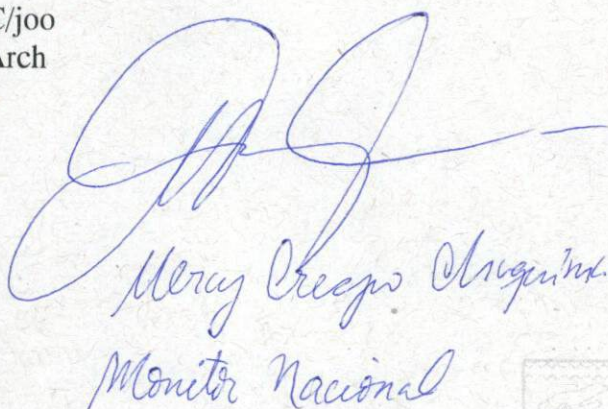 C/joo
Arch
Mercy Crespo
Monitor Nacional